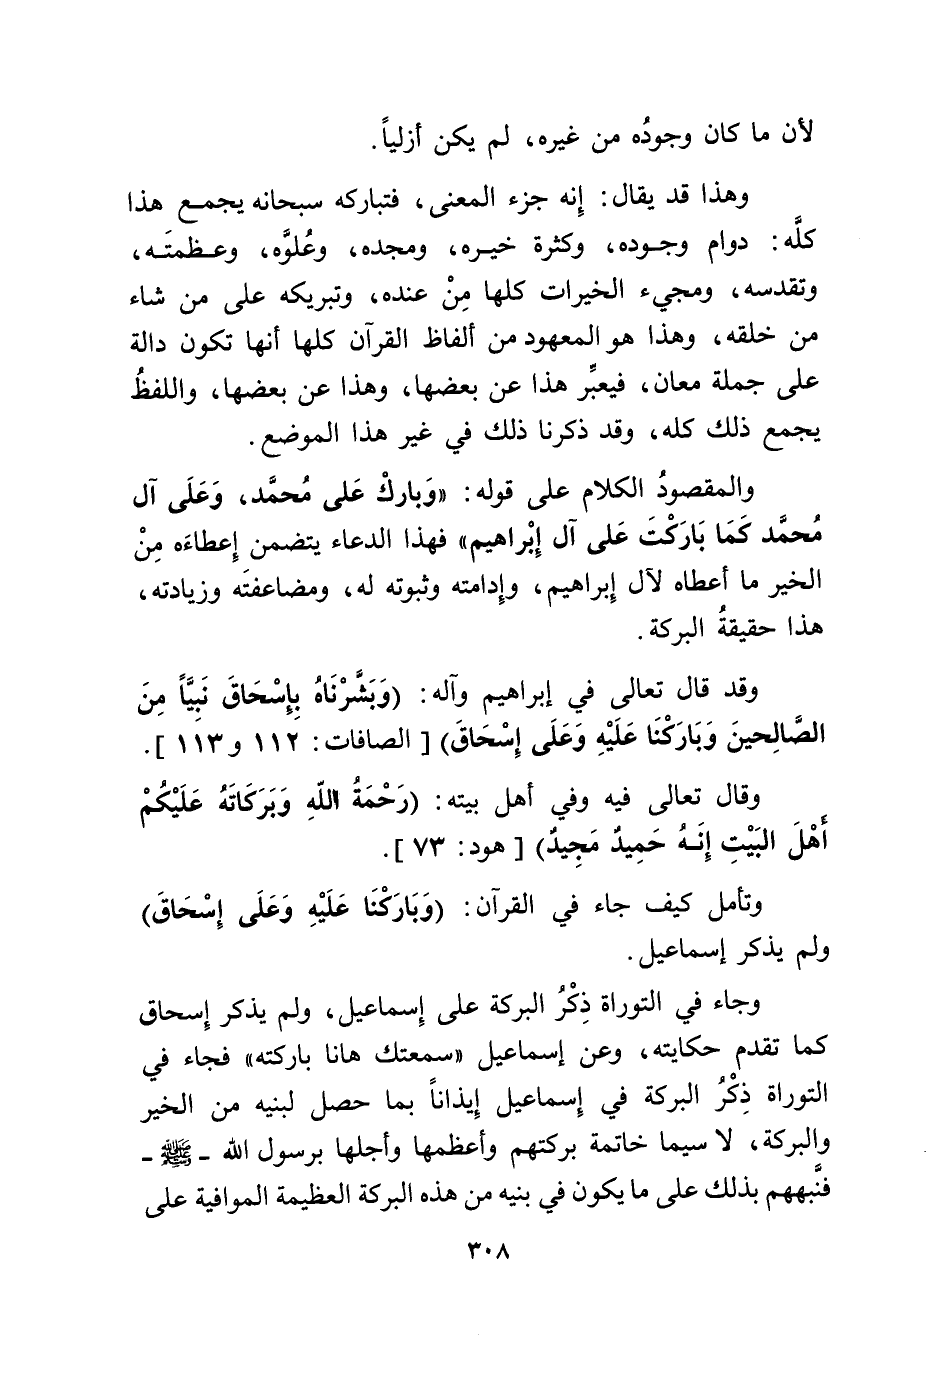 لأن ما كان وجودُه من غيره، لم يكن أزلياً.
وهذا قد يقال: إنه جزء المعنى، فتباركه سبحانه يجمع هذا
كلَّه: دوام وجوده، وكثرة خيره، ومجده، وعُلوَّه، وعظمتَه،
وتقدسه، ومجيء الخيرات كلها مِنْ عنده، وتبريكه على من شاء
من خلقه، وهذا هو المعهود من ألفاظ القرآن كلها أنها تكون دالة
على جملة معان، فيعبِّر هذا عن بعضها، وهذا عن بعضها، واللفظُ
يجمع ذلك كله، وقد ذكرنا ذلك في غير هذا الموضع.
والمقصودُ الكلام على قوله: «وَبارِكْ عَلى مُحمَّد، وَعَلَى آل
مُحمَّد كَمَا بَارَكْتَ عَلى آل إبْراهيم» فهذا الدعاء يتضمن إعطاءَه مِنْ
الخير ما أعطاه لآل إبراهيم، وإدامته وثبوته له، ومضاعفتَه وزيادته،
هذا حقيقةُ البركة.
وقد قال تعالى في إبراهيم وآله: (وَبَشَّرْنَاهُ بِإِسْحَاقَ نَبِيَّاً مِنَ
الصَّالِحينَ وَبَارَكْنَا عَلَيْهِ وَعَلَى إِسْحَاقَ) [ الصافات: ١١٢ و١١٣ ].
وقال تعالى فيه وفي أهل بيته: (رَحْمَةُ اللّهِ وَبَرَكَاتَهُ عَلَيْكُمْ
أَهْلَ البَيْتِ إِنَهُ حَمِيدٌ مَجِيدٌ) [ هود: ٧٣ ].
وتأمل كيف جاء في القرآن: (وَبَارَكْنَا عَلَيْهِ وَعَلَى إِسْحَاقَ)
ولم يذكر إسماعيل.
وجاء في التوراة ذِكْرُ البركة على إسماعيل، ولم يذكر إسحاق
كما تقدم حكايته، وعن إسماعيل «سمعتك هانا باركته» فجاء في
التوراة ذِكْرُ البركة في إسماعيل إيذاناً بما حصل لبنيه من الخير
والبركة، لا سيما خاتمة بركتهم وأعظمها وأجلها برسول الله - ﷺ -
فنَّبههم بذلك على ما يكون في بنيه من هذه البركة العظيمة الموافية على
٣٠٨